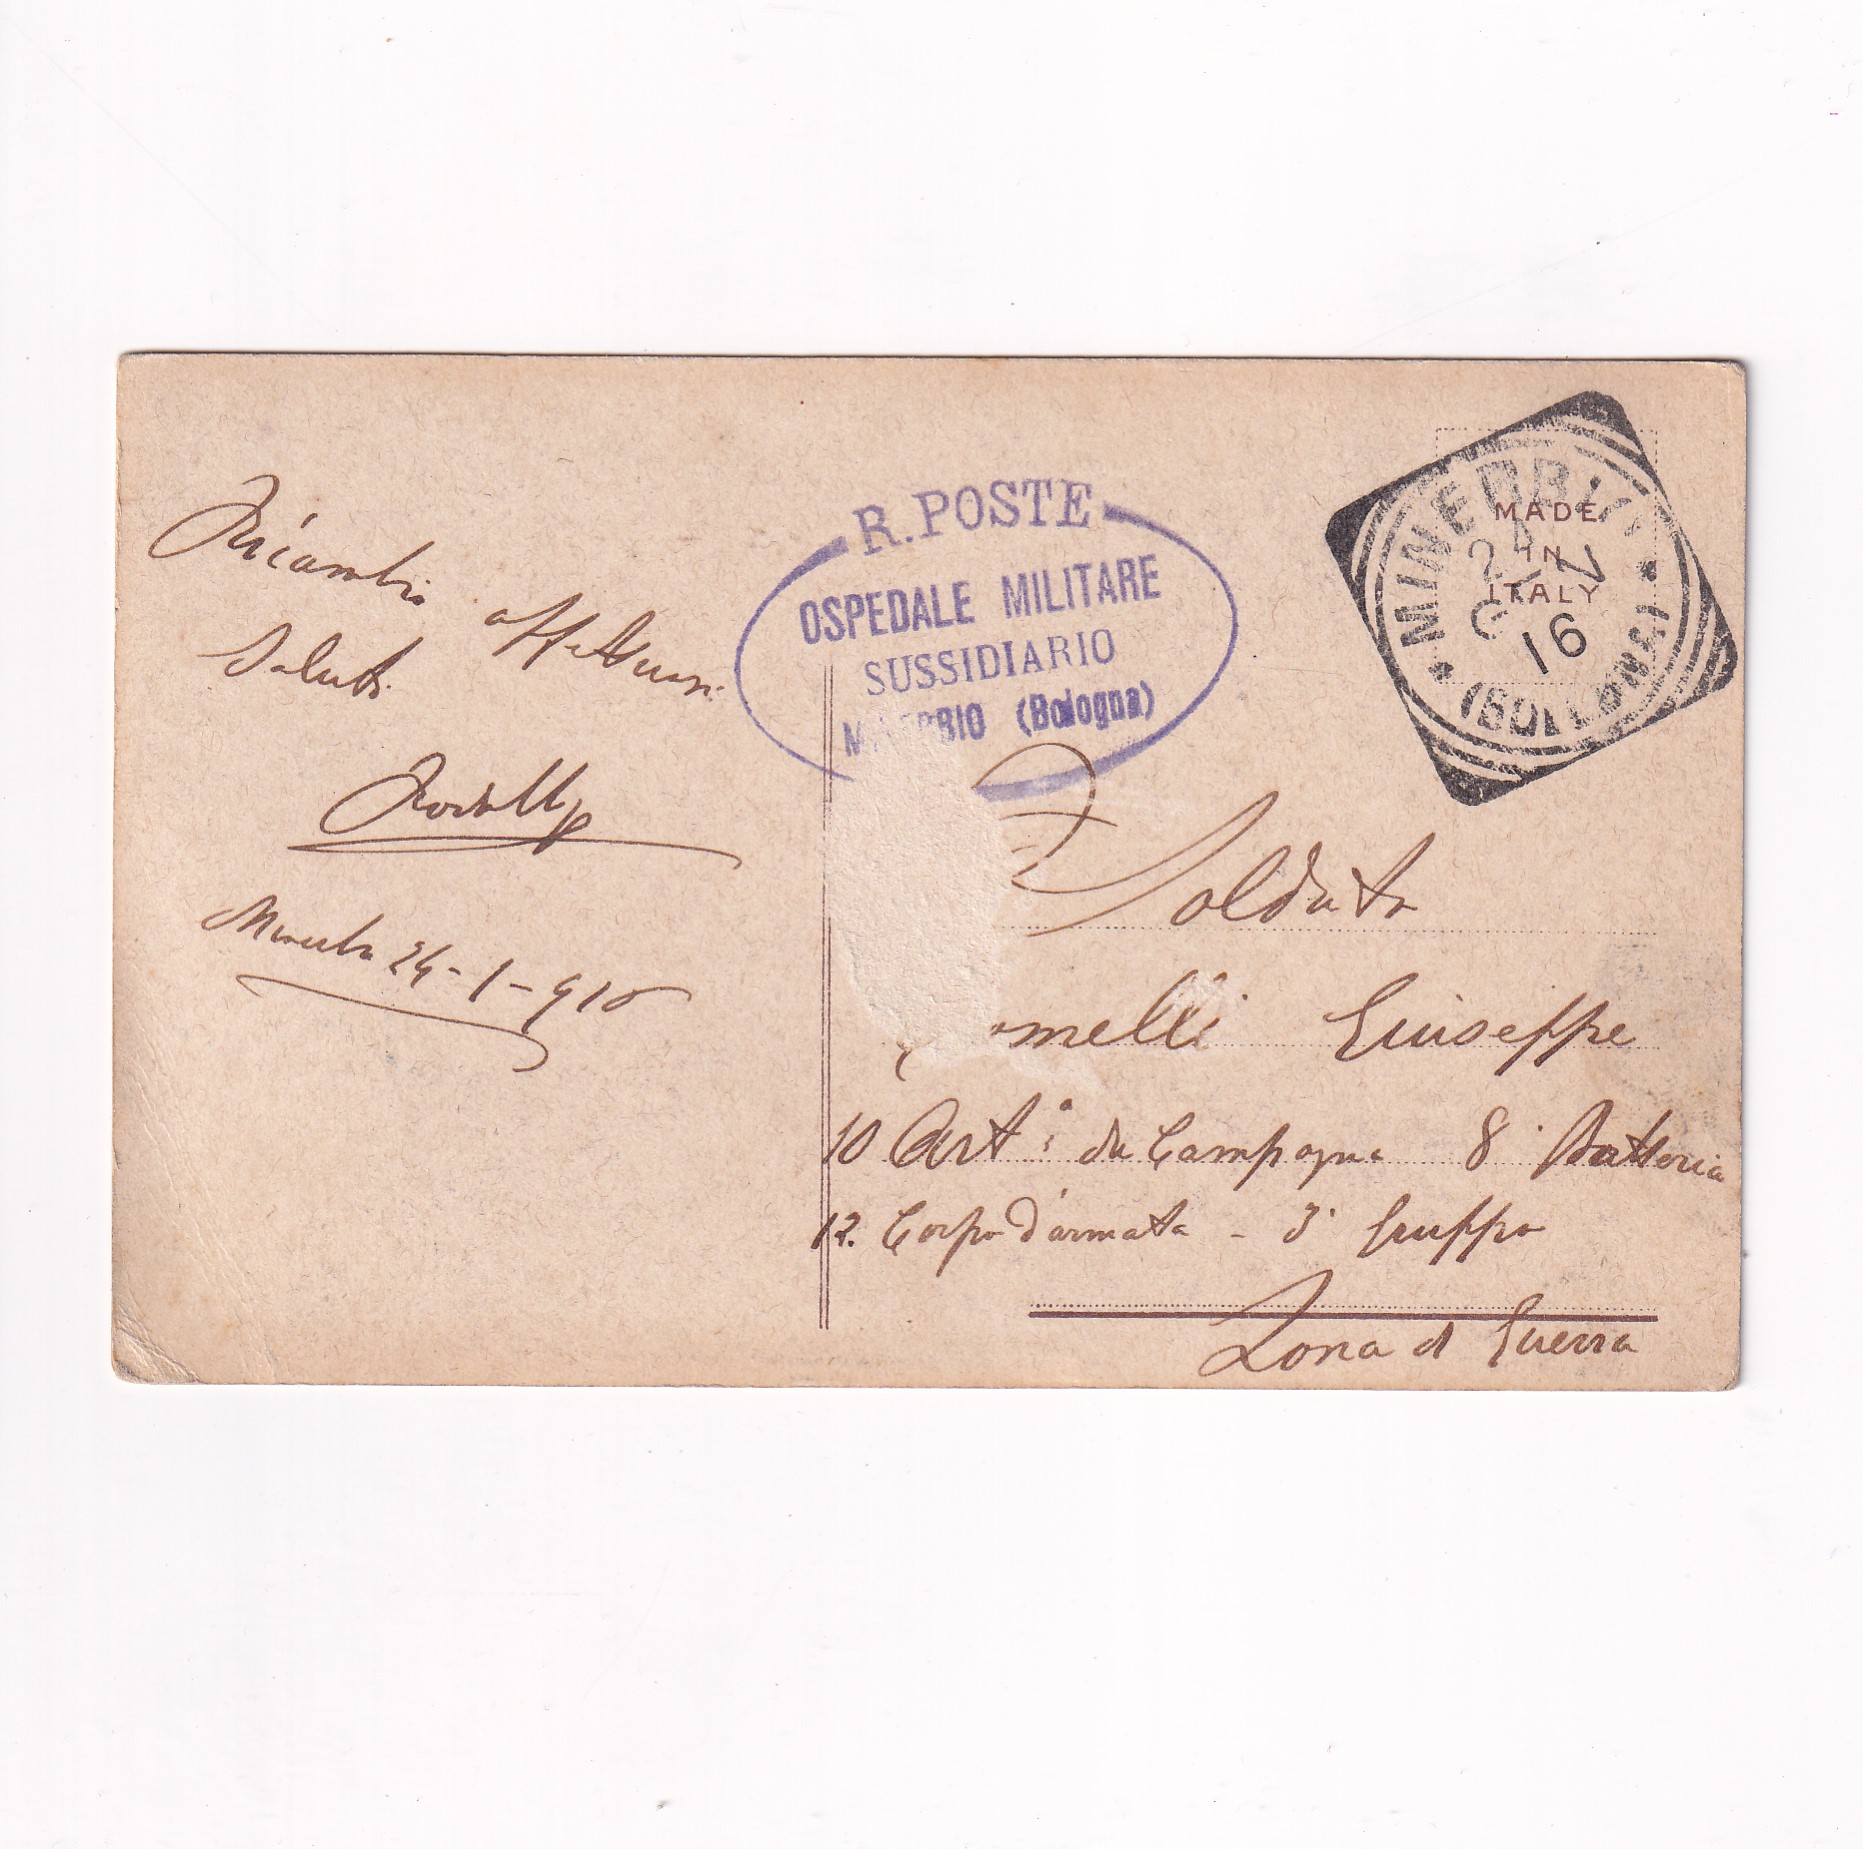 Ricambio affettuosi
Saluti
Minerbio 24-1-916
R. POSTE
OSPEDALE MILITARE
SUSSIDIARIO
(Bologna)
MINERBIO
24
16
MADE
IN
ITALY
Soldato
Giuseppe
10 Art.a da Campagna 8. Batteria
12. Corpo d'armata - 3° Gruppo
Zona di Guerra